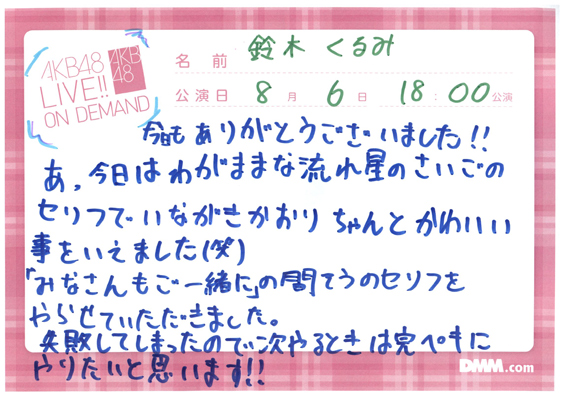 AKB48
LIVE!!
ON DEMAND
AKB
48
名前 鈴木 くるみ
公演日 8月 6日 18:00公演
今日もありがとうございました!!
あ、今日はわがままな流れ星のさいごの
セリフでいながきかおりちゃんとかわいい
事をいえました(笑)
「みなさんもご一緒に」の間てうのセリフを
やらせていただきました。
失敗してしまったので次やるときは完ペキに
やりたいと思います!!
DMM.com